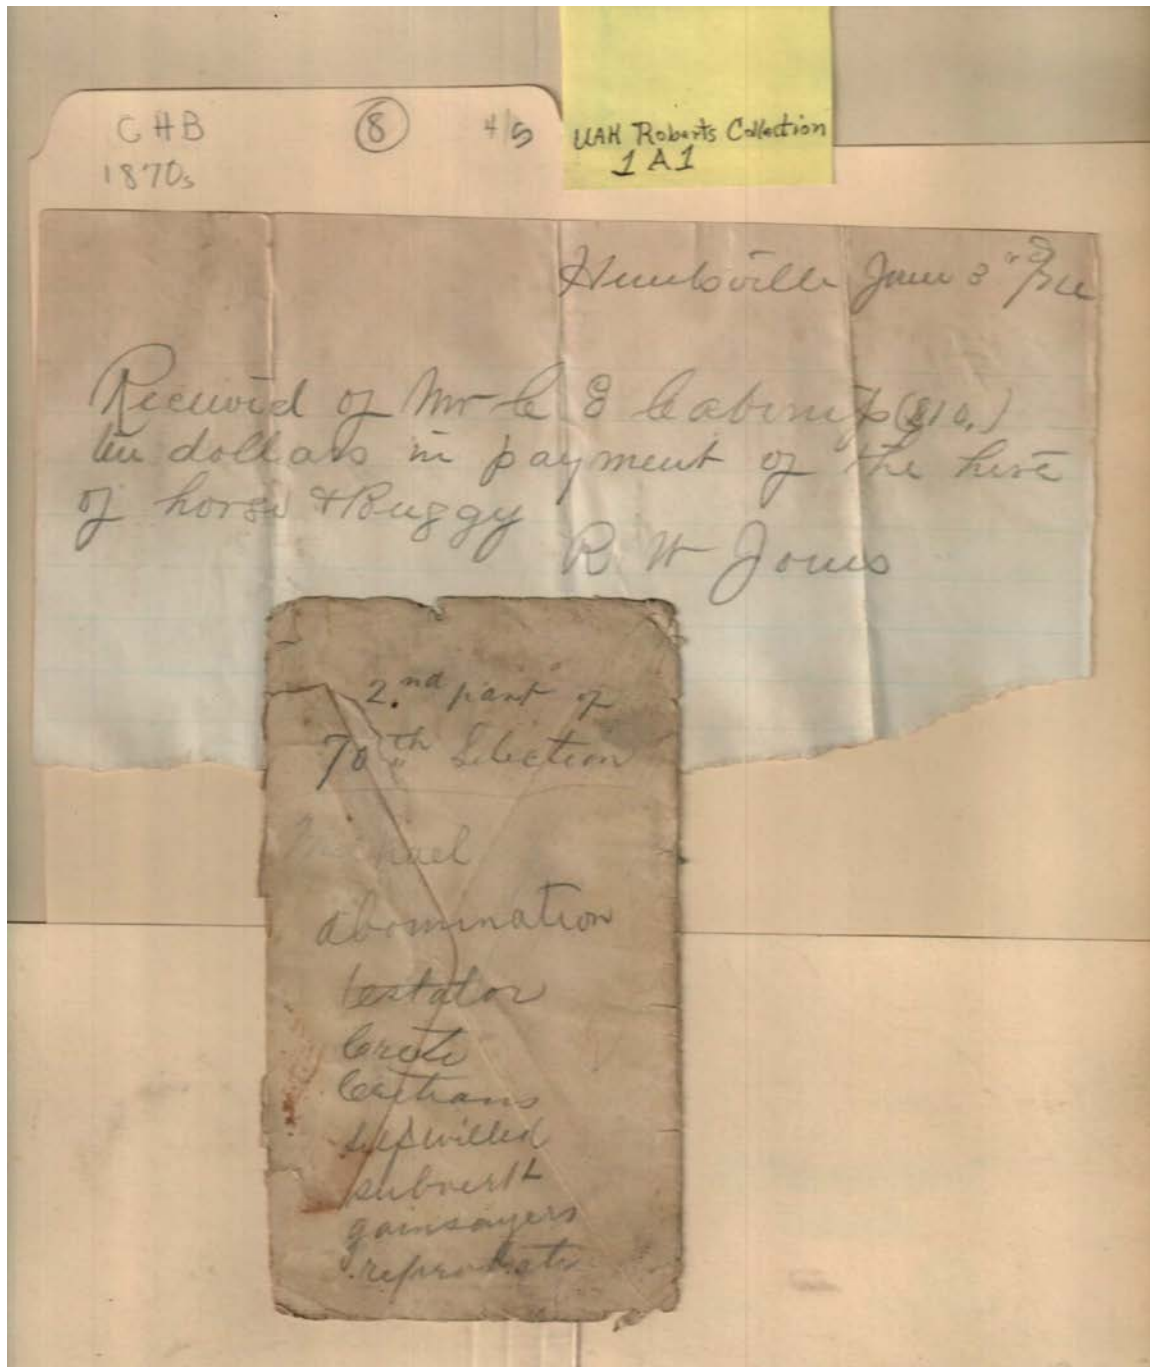 CHB 8 4/5
1870s
UAH Roberts Collection
1 A 1
Huntsville June 3rd
Received of Mr C E Cabiniss ($10.)
ten dollars in payment of the hire
of horse & Buggy
R W Jones
2.nd part of
70th Selection
Michael
abomination
testator
Crete
Cretians
selfwilled
subvert
gainsayers
reprobate